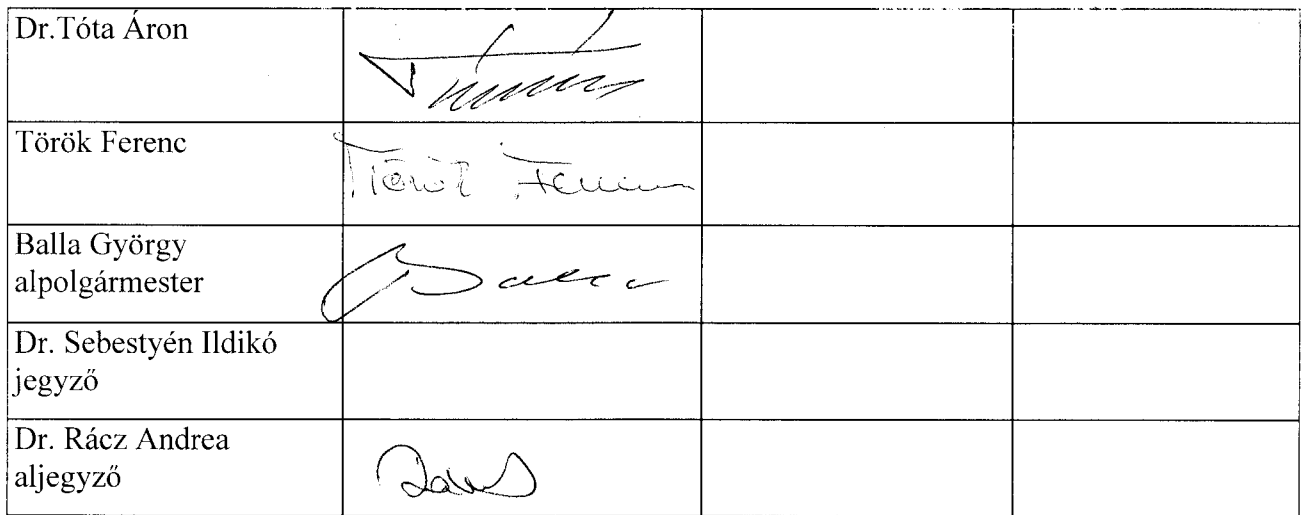 Dr.Tóta Áron
Török Ferenc
Török Ferenc
Balla György
alpolgármester
Balla
Dr. Sebestyén Ildikó
jegyző
Dr. Rácz Andrea
aljegyző